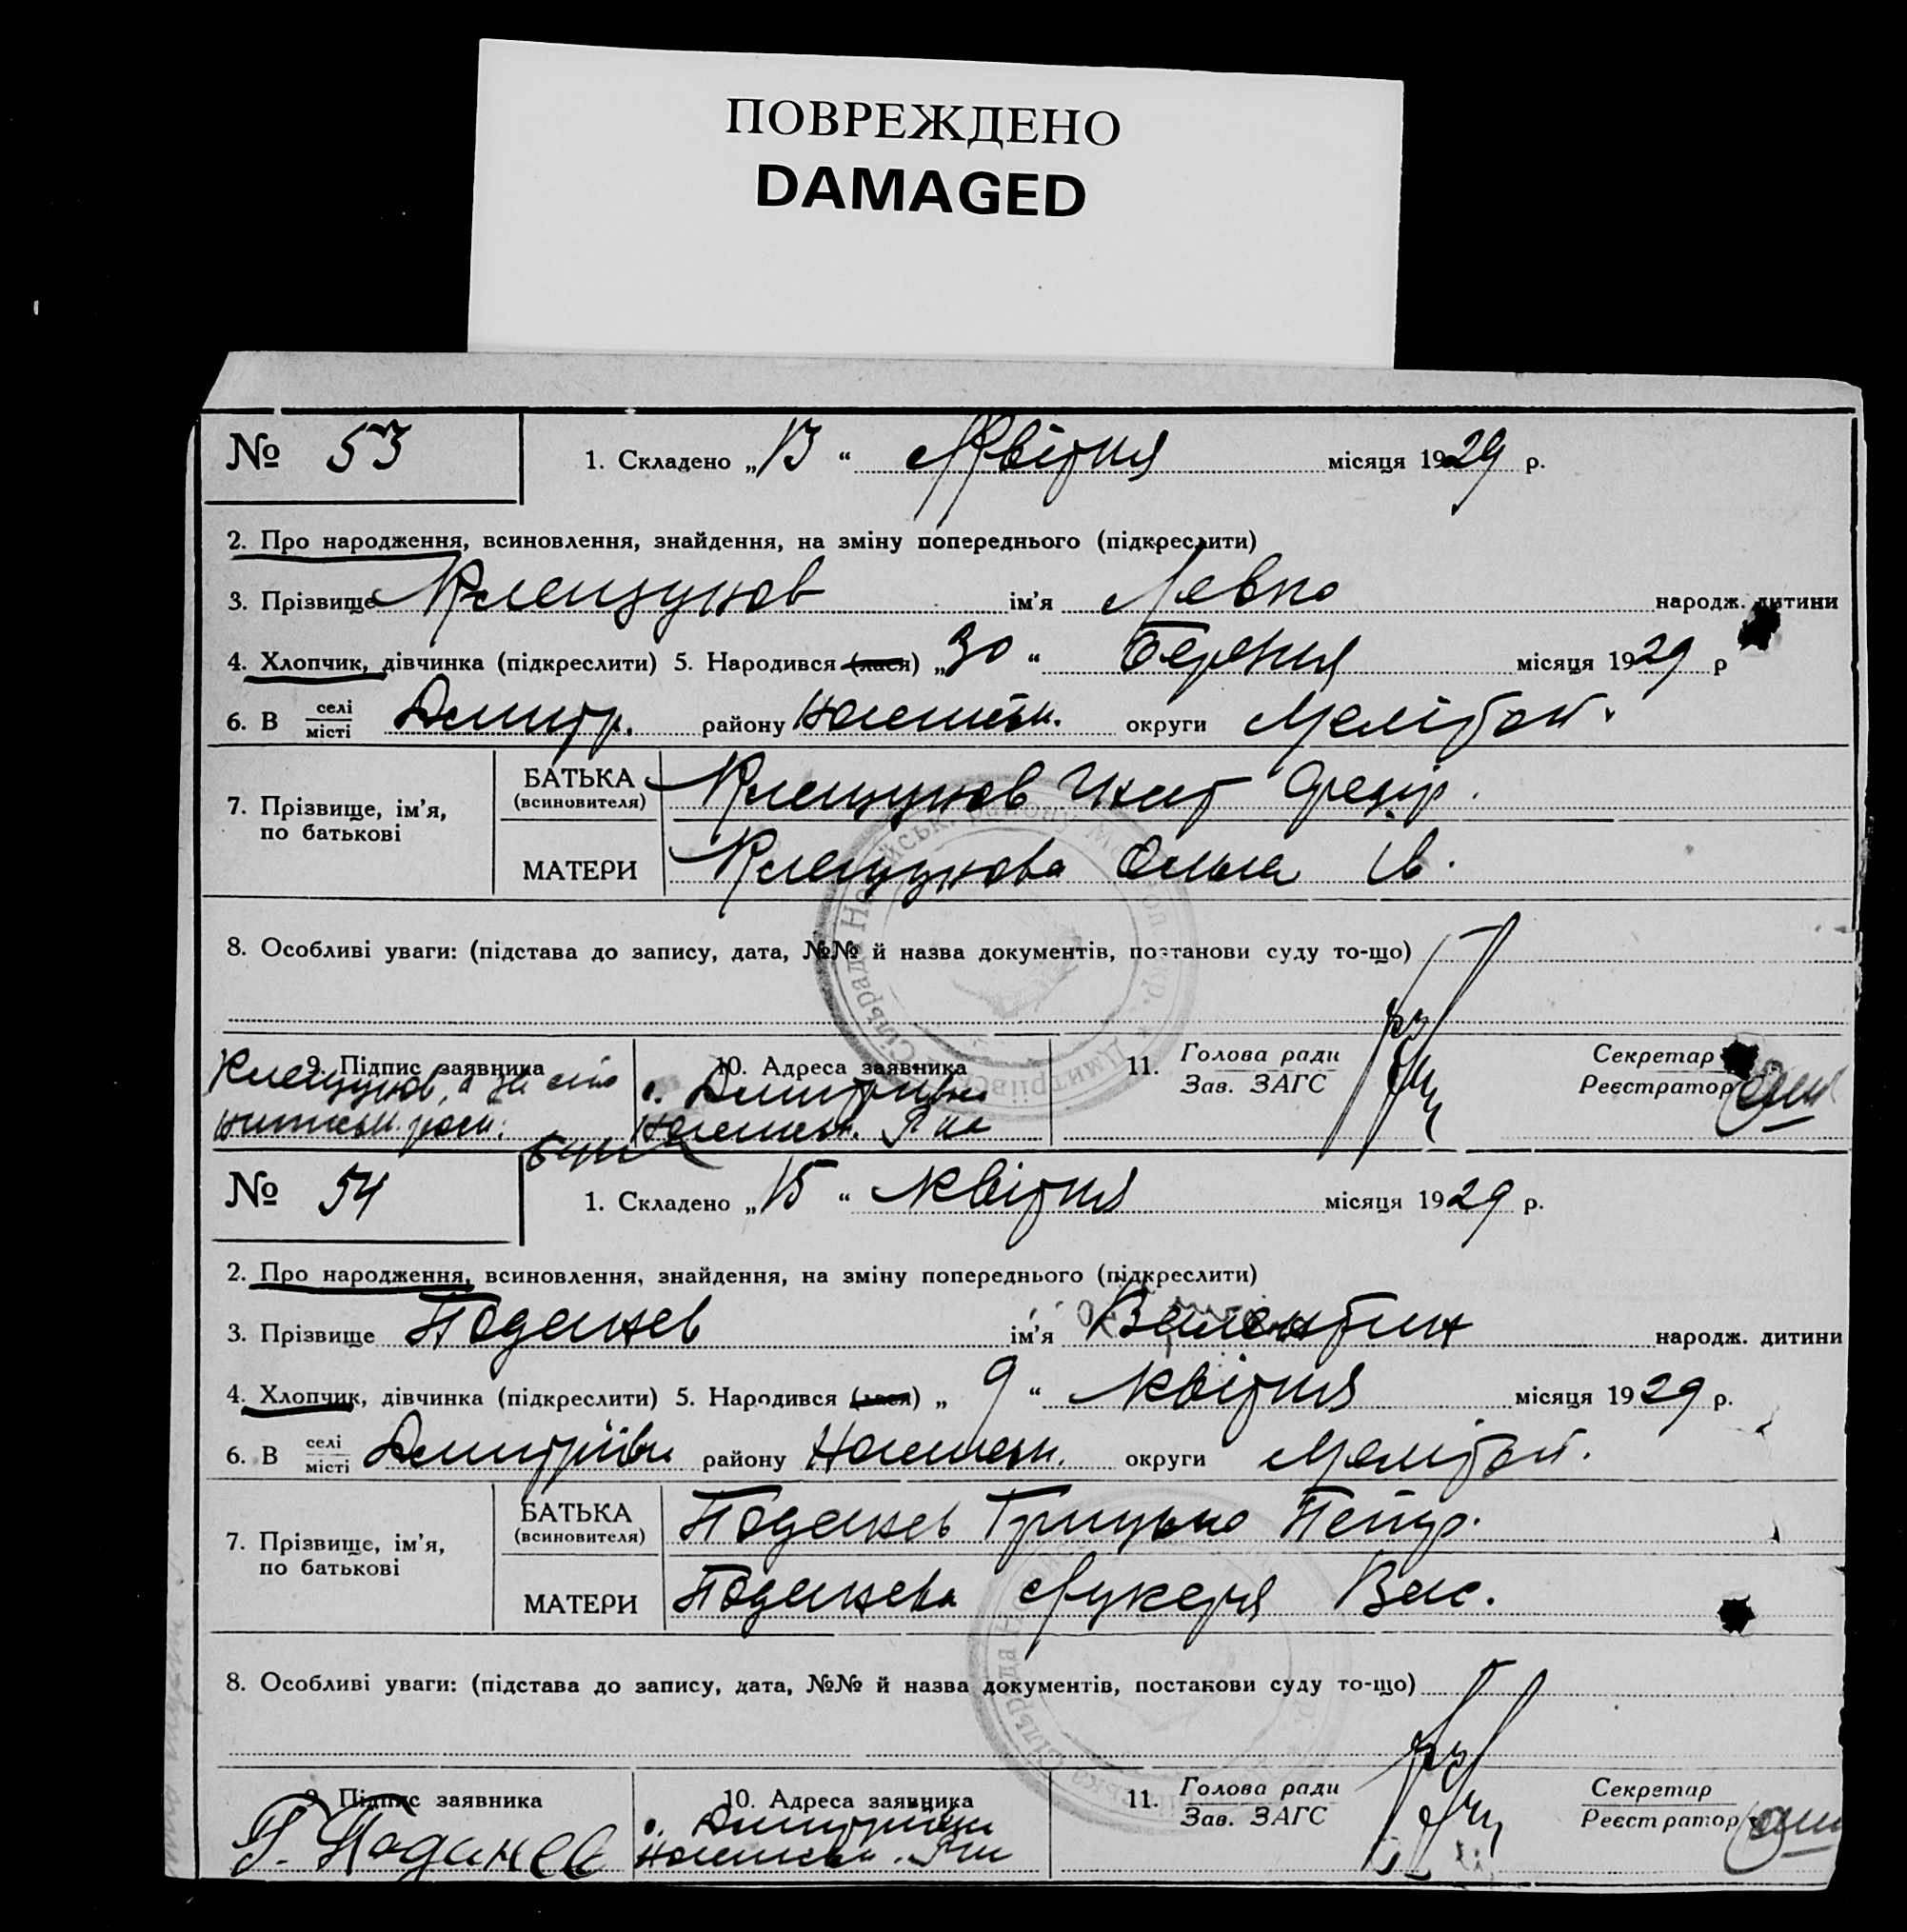 ПОВРЕЖДЕНО
DAMAGED
№ 53
1. Складено „13“ Квітня місяця 1929 р.
2. Про народження, всиновлення, знайдення, на зміну попереднього (підкреслити)
3. Прізвище Клещунов ім'я Левко народж. дитини
4. Хлопчик, дівчинка (підкреслити) 5. Народився (лася) „30“ Березня місяця 1929 р
6. В селі місті Дмитр. району округи Мелітоп.
7. Прізвище, ім'я, по батькові
БАТЬКА (всиновителя) Клещунов Гнат Федір.
МАТЕРИ Клещунова Ольга Ів.
8. Особливі уваги: (підстава до запису, дата, №№ й назва документів, постанови суду то-що)
9. Підпис заявника
Клещунов, а за його
10. Адреса заявника
с. Дмитрівка
11. Голова ради
Зав. ЗАГС
Секретар
Реєстратор
№ 54
1. Складено „15“ Квітня місяця 1929 р.
2. Про народження, всиновлення, знайдення, на зміну попереднього (підкреслити)
3. Прізвище Поданев ім'я Валентин народж. дитини
4. Хлопчик, дівчинка (підкреслити) 5. Народився (лася) „9“ Квітня місяця 1929 р.
6. В селі місті Дмитрівк району округи Мелітоп.
7. Прізвище, ім'я, по батькові
БАТЬКА (всиновителя) Поданев Грицько Петр.
МАТЕРИ Поданева Лукеря Вас.
8. Особливі уваги: (підстава до запису, дата, №№ й назва документів, постанови суду то-що)
9. Підпис заявника
Г. Поданев
10. Адреса заявника
с. Дмитрівки
11. Голова ради
Зав. ЗАГС
Секретар
Реєстратор